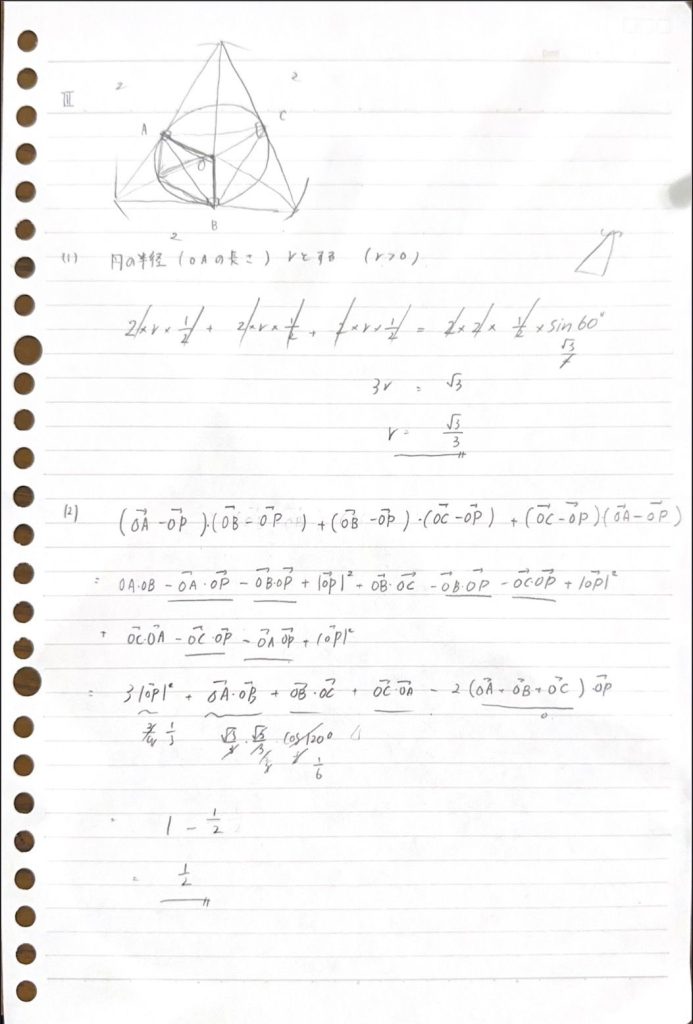 Ⅲ
2
2
A
C
O
B
2
(1) 円の半径 (OAの長さ) rとする (r>0)
2×r×1/2 + 2×r×1/2 + 2×r×1/2 = 2×2×1/2×sin60°
√3/2
3r = √3
r = √3/3
(2) (OA→ - OP→)・(OB→ - OP→) + (OB→ - OP→)・(OC→ - OP→) + (OC→ - OP→)(OA→ - OP→)
= OA・OB - OA→・OP→ - OB→・OP→ + |OP→|² + OB→・OC→ - OB→・OP→ - OC→・OP→ + |OP→|²
+ OC→・OA→ - OC→・OP→ - OA→ OP→ + |OP→|²
= 3|OP→|² + OA→・OB→ + OB→・OC→ + OC→・OA→ - 2(OA→ + OB→ + OC→)・OP→
1/3 √3/3・√3/3・cos120° 0
1/6
1 - 1/2
= 1/2